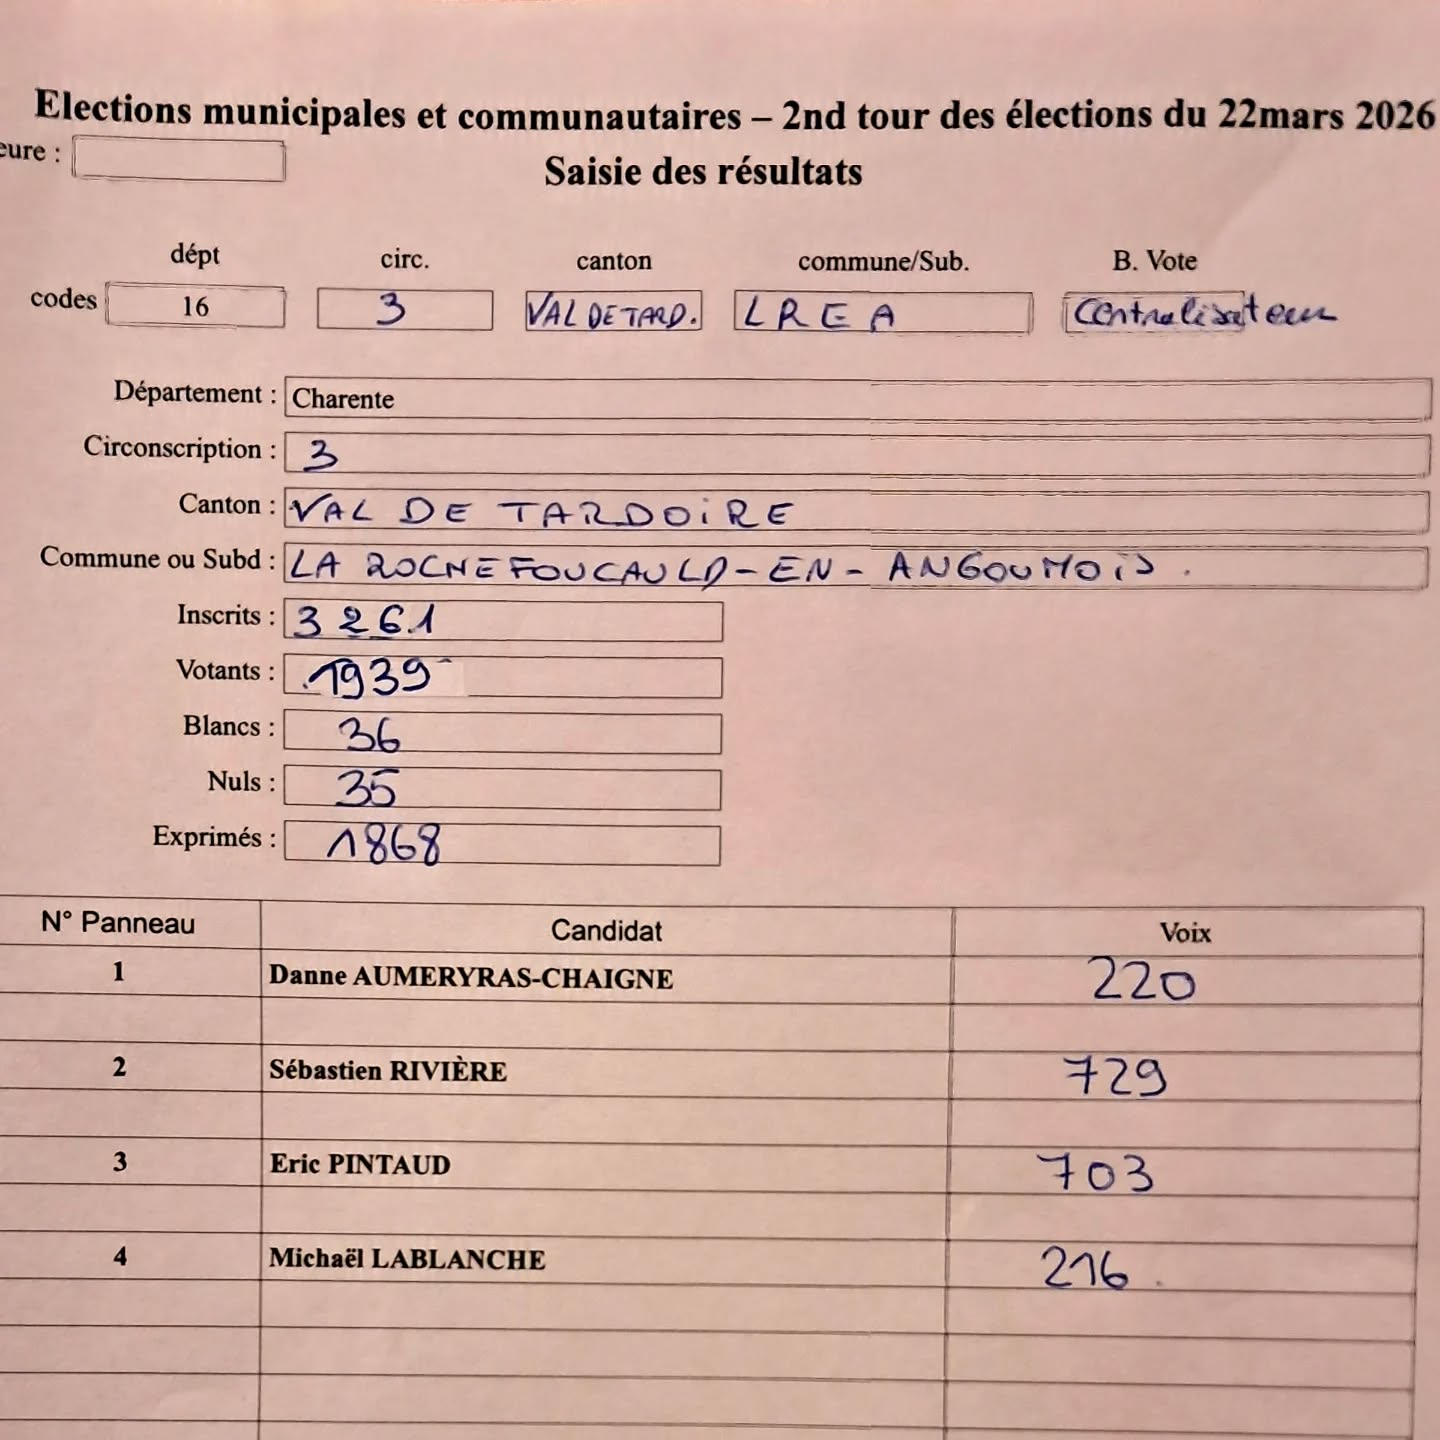 Elections municipales et communautaires – 2nd tour des élections du 22mars 2026
eure :
Saisie des résultats
dépt circ. canton commune/Sub. B. Vote
codes 16 3 VAL DE TARD. LREA Centralisateur
Département : Charente
Circonscription : 3
Canton : VAL DE TARDOIRE
Commune ou Subd : LA ROCHEFOUCAULD-EN-ANGOUMOIS.
Inscrits : 3261
Votants : 1939
Blancs : 36
Nuls : 35
Exprimés : 1868
N° Panneau Candidat Voix
1 Danne AUMERYRAS-CHAIGNE 220
2 Sébastien RIVIÈRE 729
3 Eric PINTAUD 703
4 Michaël LABLANCHE 216